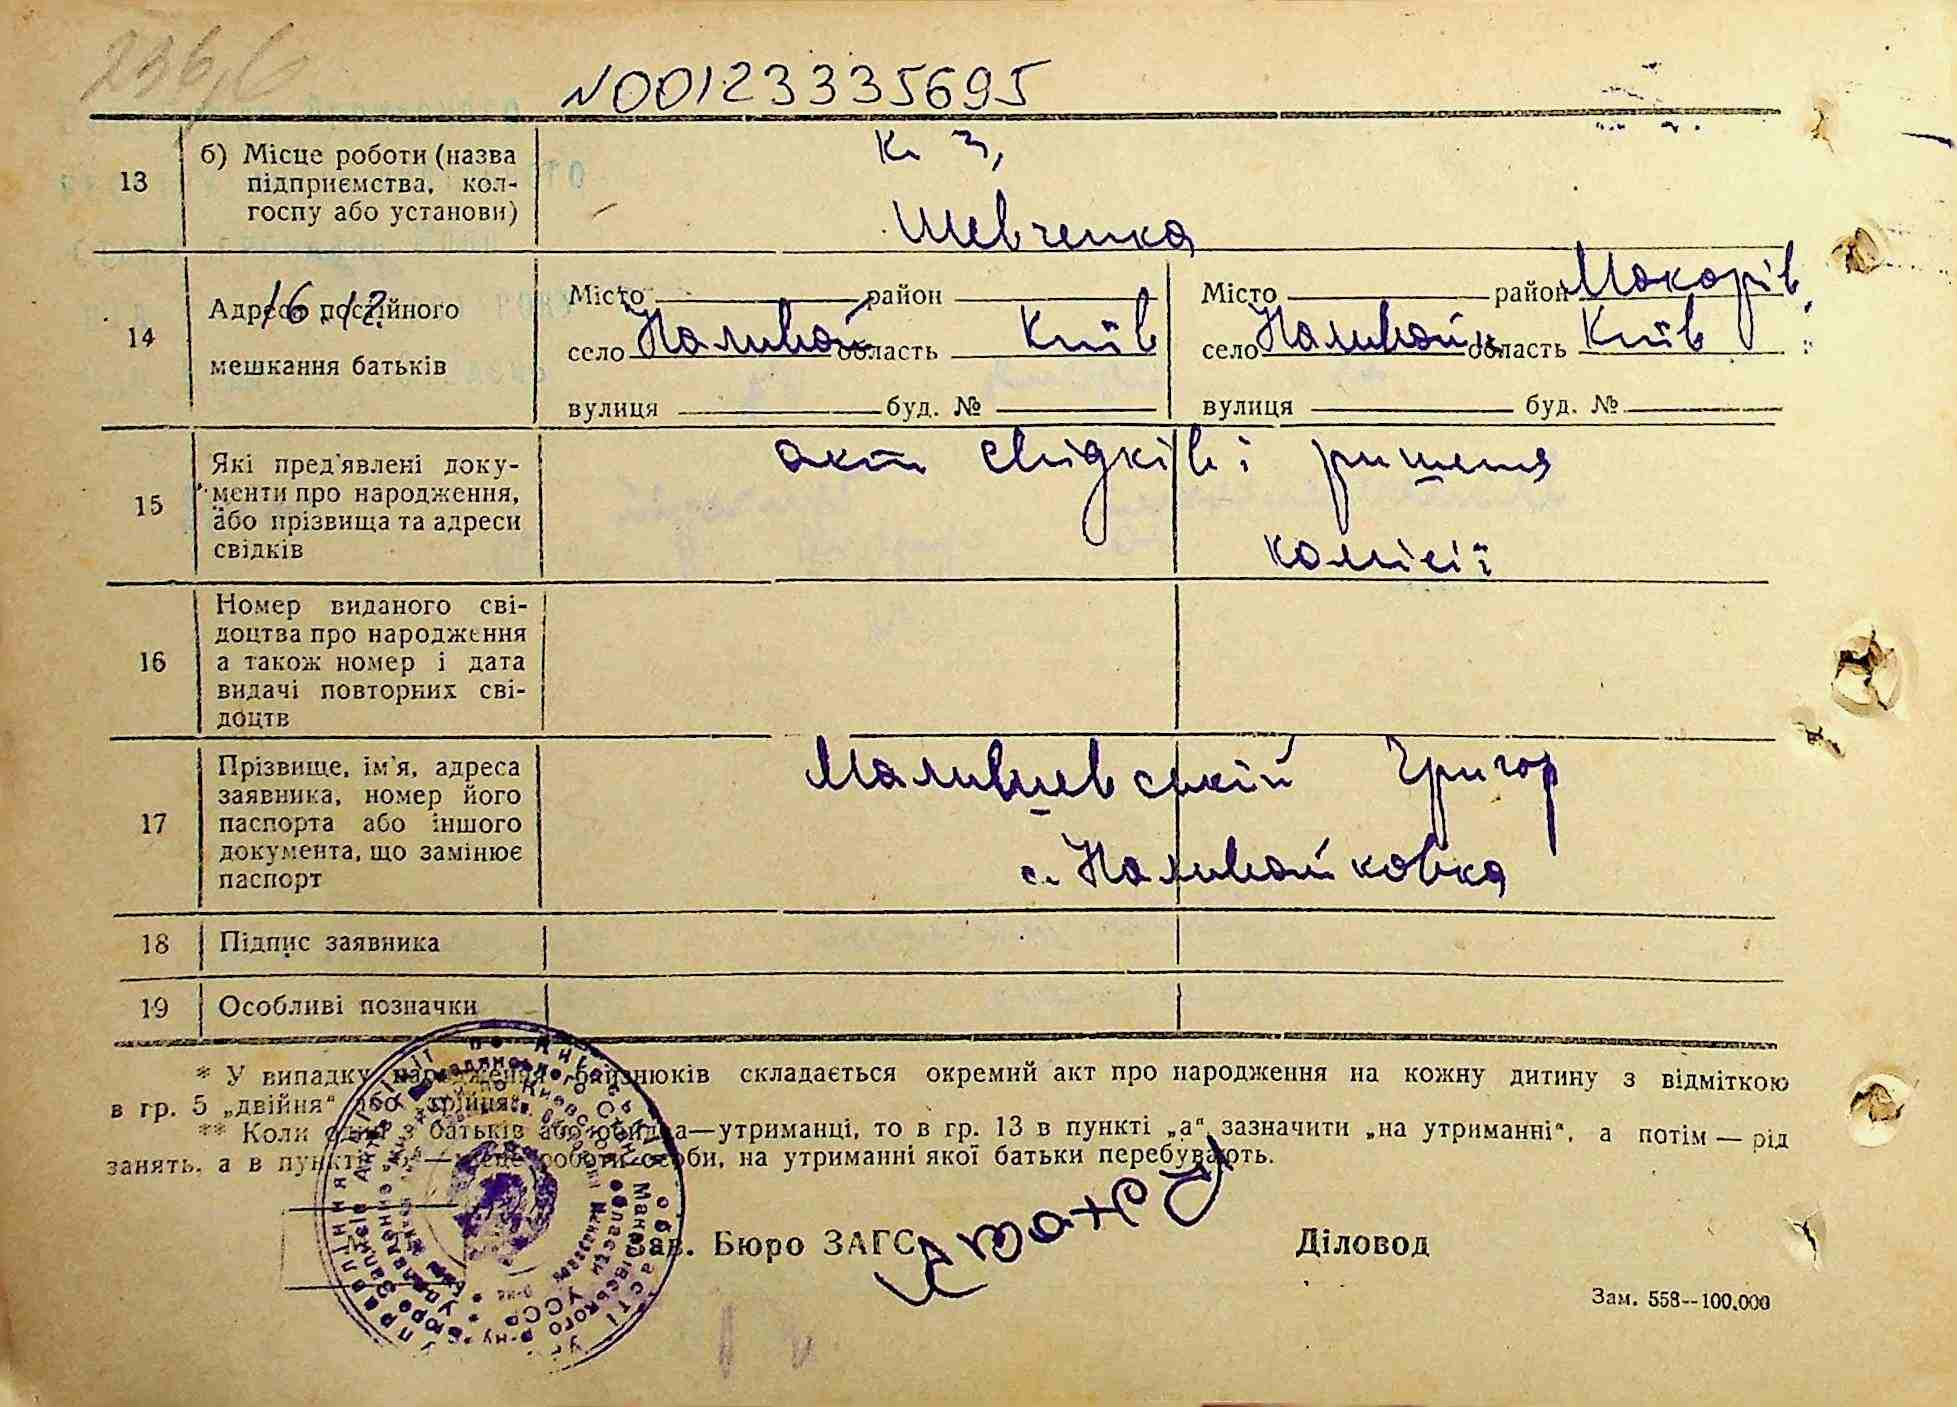 236,6
N00123335695
13
б) Місце роботи (назва
підприємства, кол-
госпу або установи)
К. З,
Шевченка
14
Адреса постійного
мешкання батьків
16 12
Місто район
село Наливай область Київ
вулиця буд. №
Місто район Макарів
село Наливайк область Київ
вулиця буд. №
15
Які пред'явлені доку-
менти про народження,
або прізвища та адреси
свідків
акт свідків і ришення
комісії
16
Номер виданого сві-
доцтва про народження
а також номер і дата
видачі повторних сві-
доцтв
17
Прізвище, ім'я, адреса
заявника, номер його
паспорта або іншого
документа, що замінює
паспорт
Малившевській Григор
с. Наливайковка
18
Підпис заявника
19
Особливі позначки
* У випадку народження близнюків складається окремий акт про народження на кожну дитину з відміткою
в гр. 5 „двійня“ або „трійня“.
** Коли один з батьків або обидва—утриманці, то в гр. 13 в пункті „а“ зазначити „на утриманні“, а потім — рід
занять, а в пункті „б“ — місце роботи особи, на утриманні якої батьки перебувають.
Зав. Бюро ЗАГС
Діловод
Зам. 558--100.000